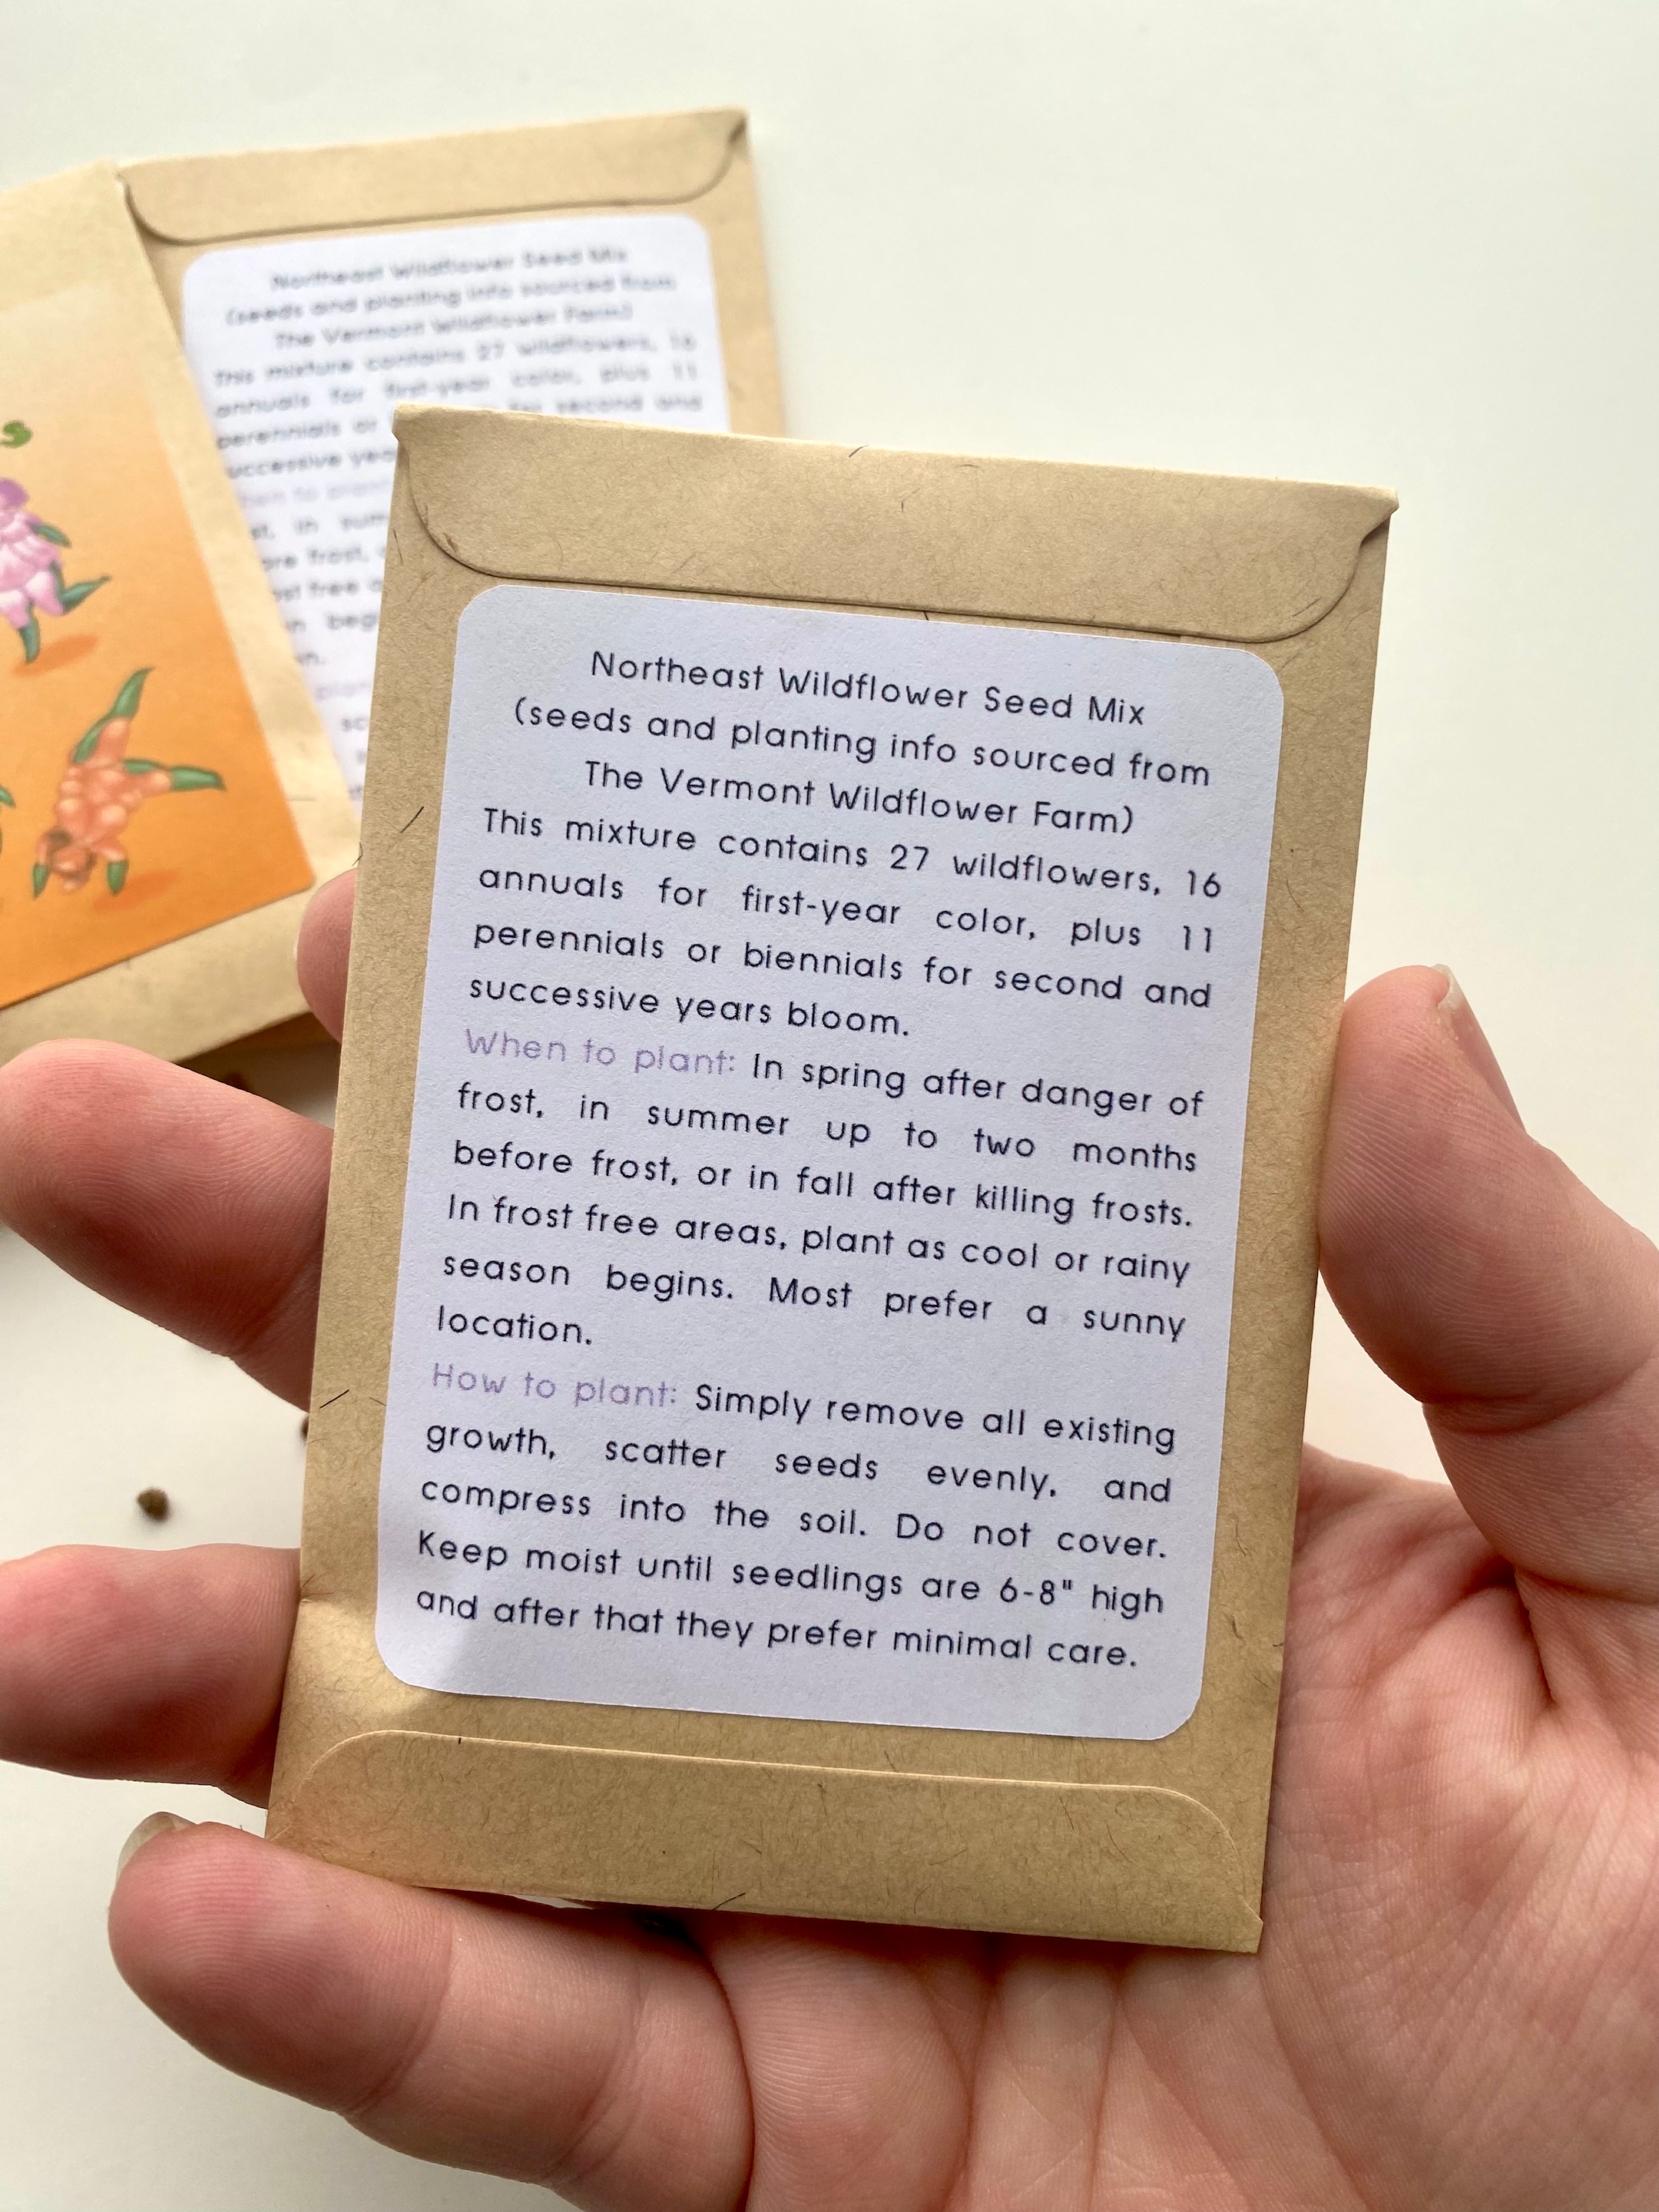 Northeast Wildflower Seed Mix
(seeds and planting info sourced from
The Vermont Wildflower Farm)
This mixture contains 27 wildflowers, 16
annuals for first-year color, plus 11
perennials or for second and
successive
S
Northeast Wildflower Seed Mix
(seeds and planting info sourced from
The Vermont Wildflower Farm)
This mixture contains 27 wildflowers, 16
annuals for first-year color, plus 11
perennials or biennials for second and
successive years bloom.
When to plant: In spring after danger of
frost, in summer up to two months
before frost, or in fall after killing frosts.
In frost free areas, plant as cool or rainy
season begins. Most prefer a sunny
location.
How to plant: Simply remove all existing
growth, scatter seeds evenly, and
compress into the soil. Do not cover.
Keep moist until seedlings are 6-8" high
and after that they prefer minimal care.